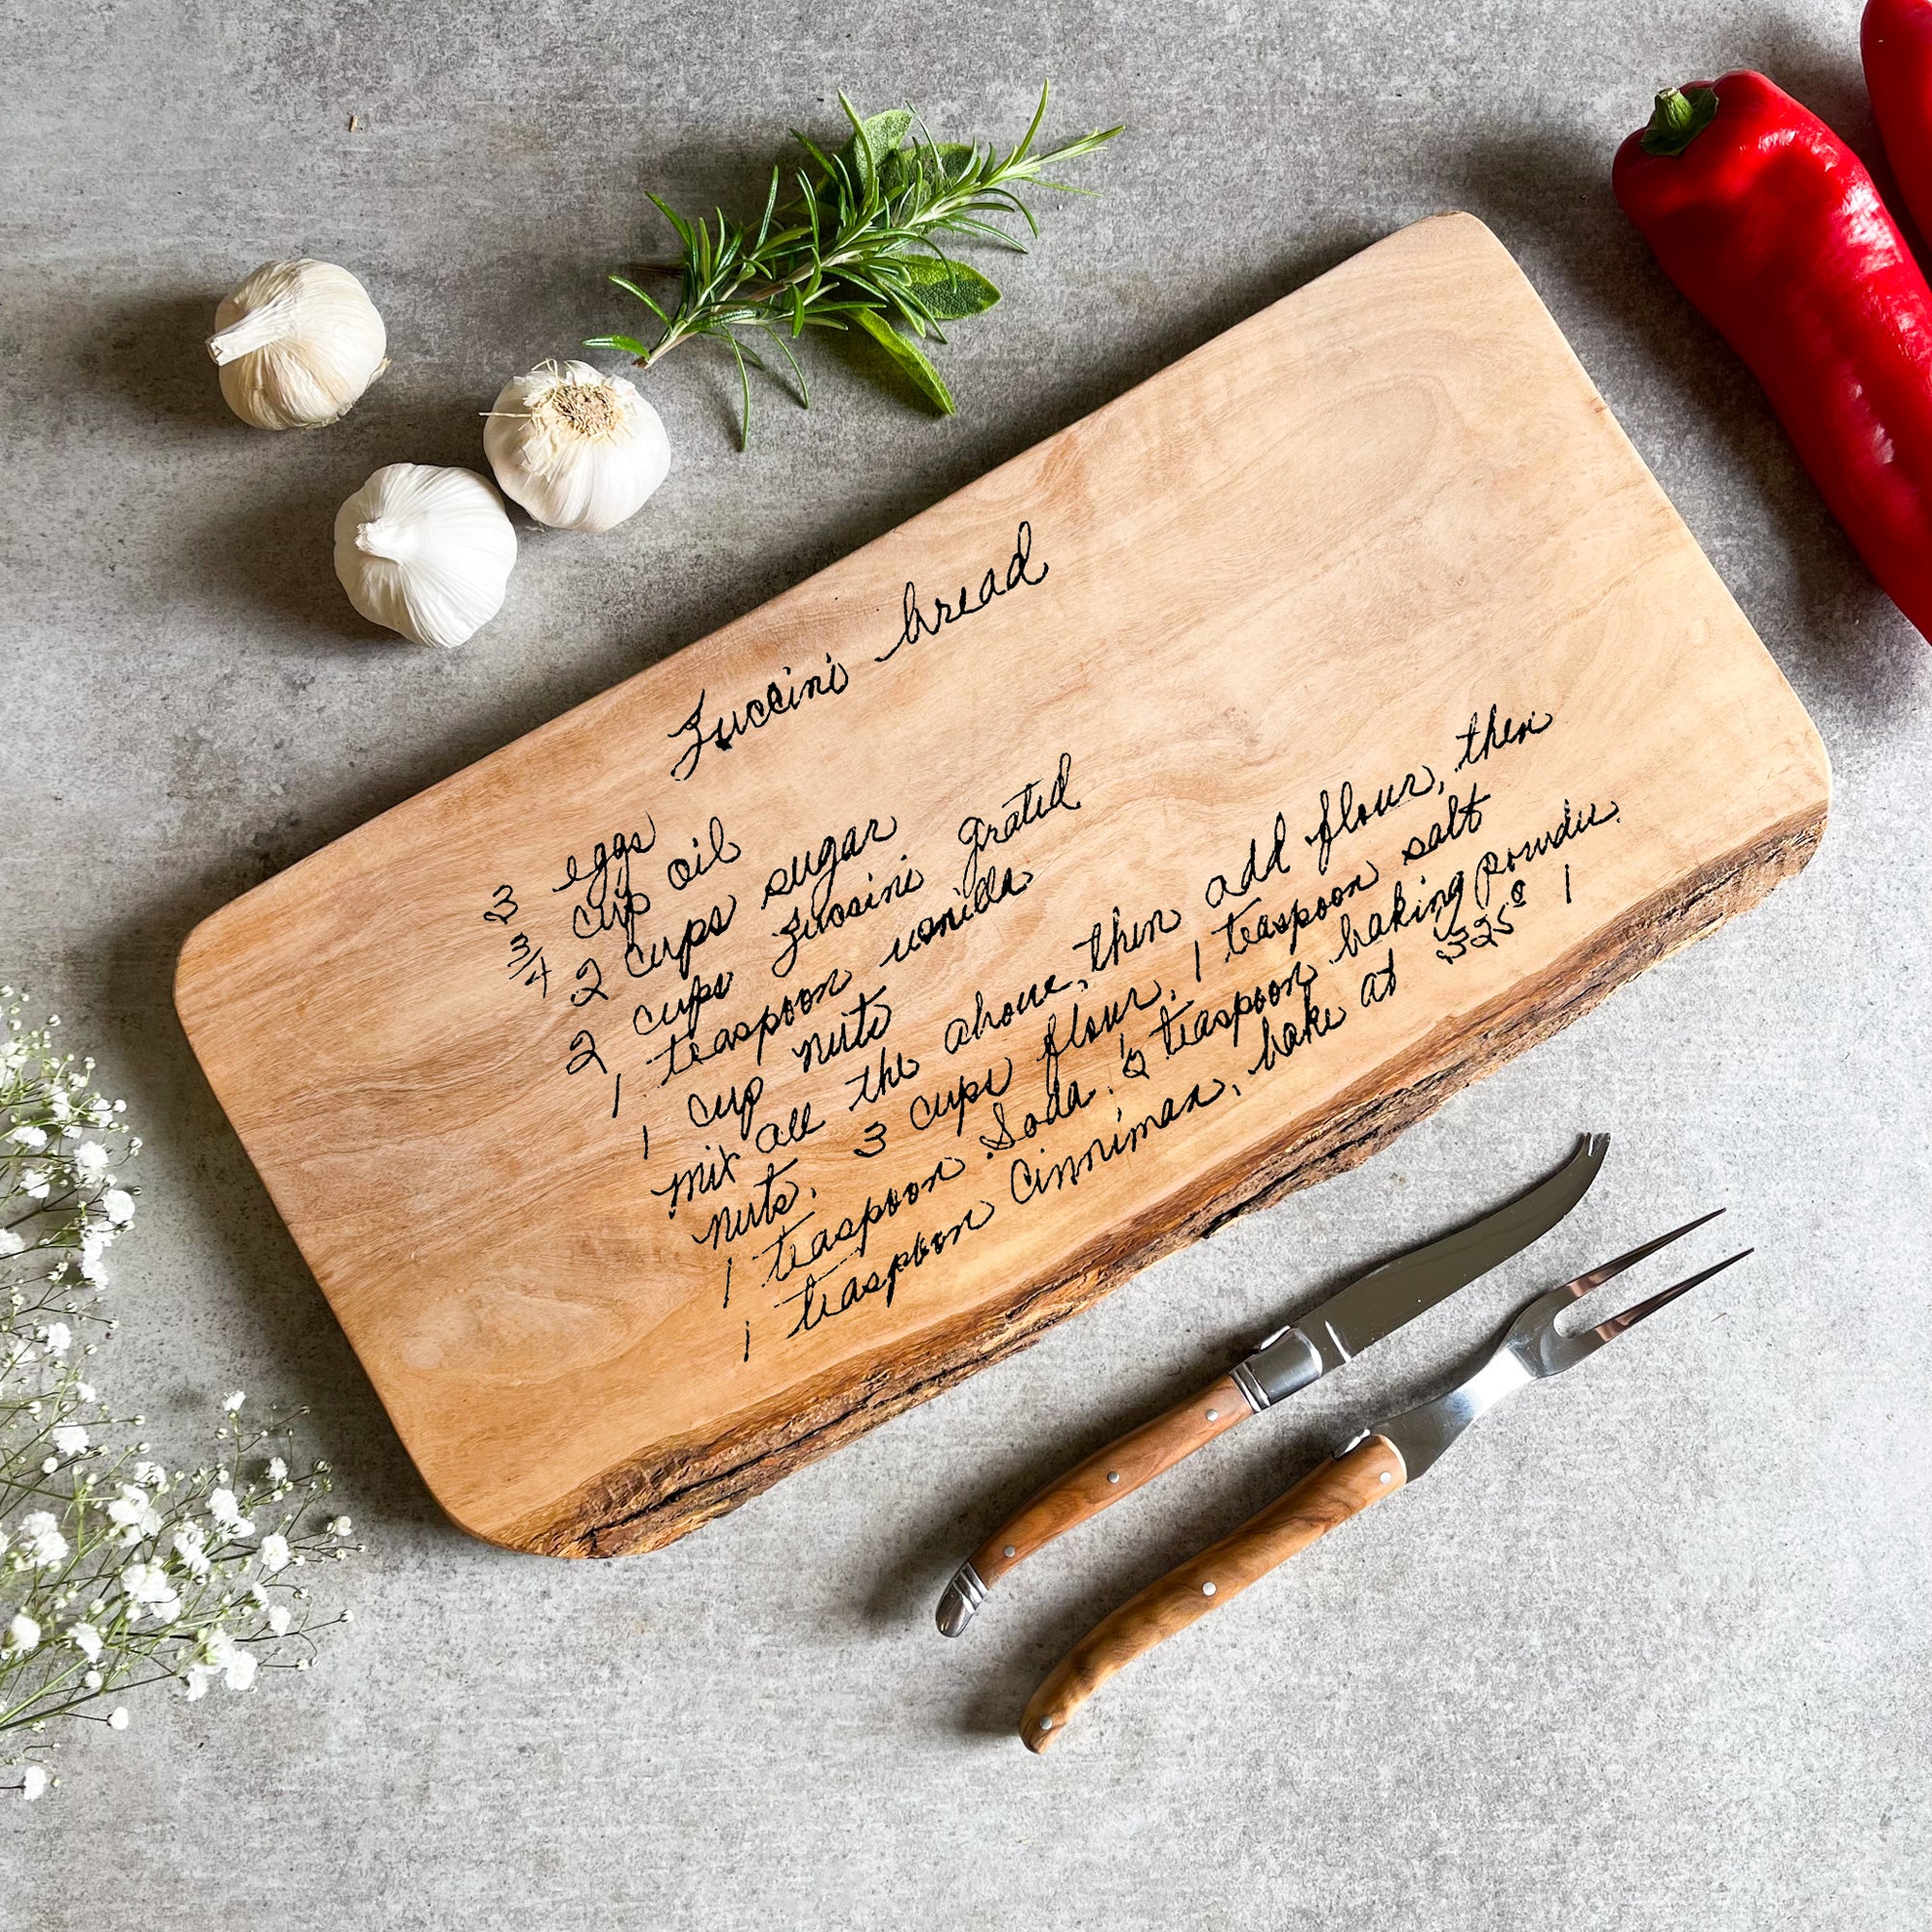 Zuccini bread
3 eggs
3/4 cup oil
2 cups sugar
2 cups zuccini grated
1 teaspoon vanilla
1 cup nuts
mix all the above, then add flour, then
nuts. 3 cups flour, 1 teaspoon salt
1 teaspoon Soda, 1/2 teaspoon baking powder
1 teaspoon Cinniman, bake at 325° 1